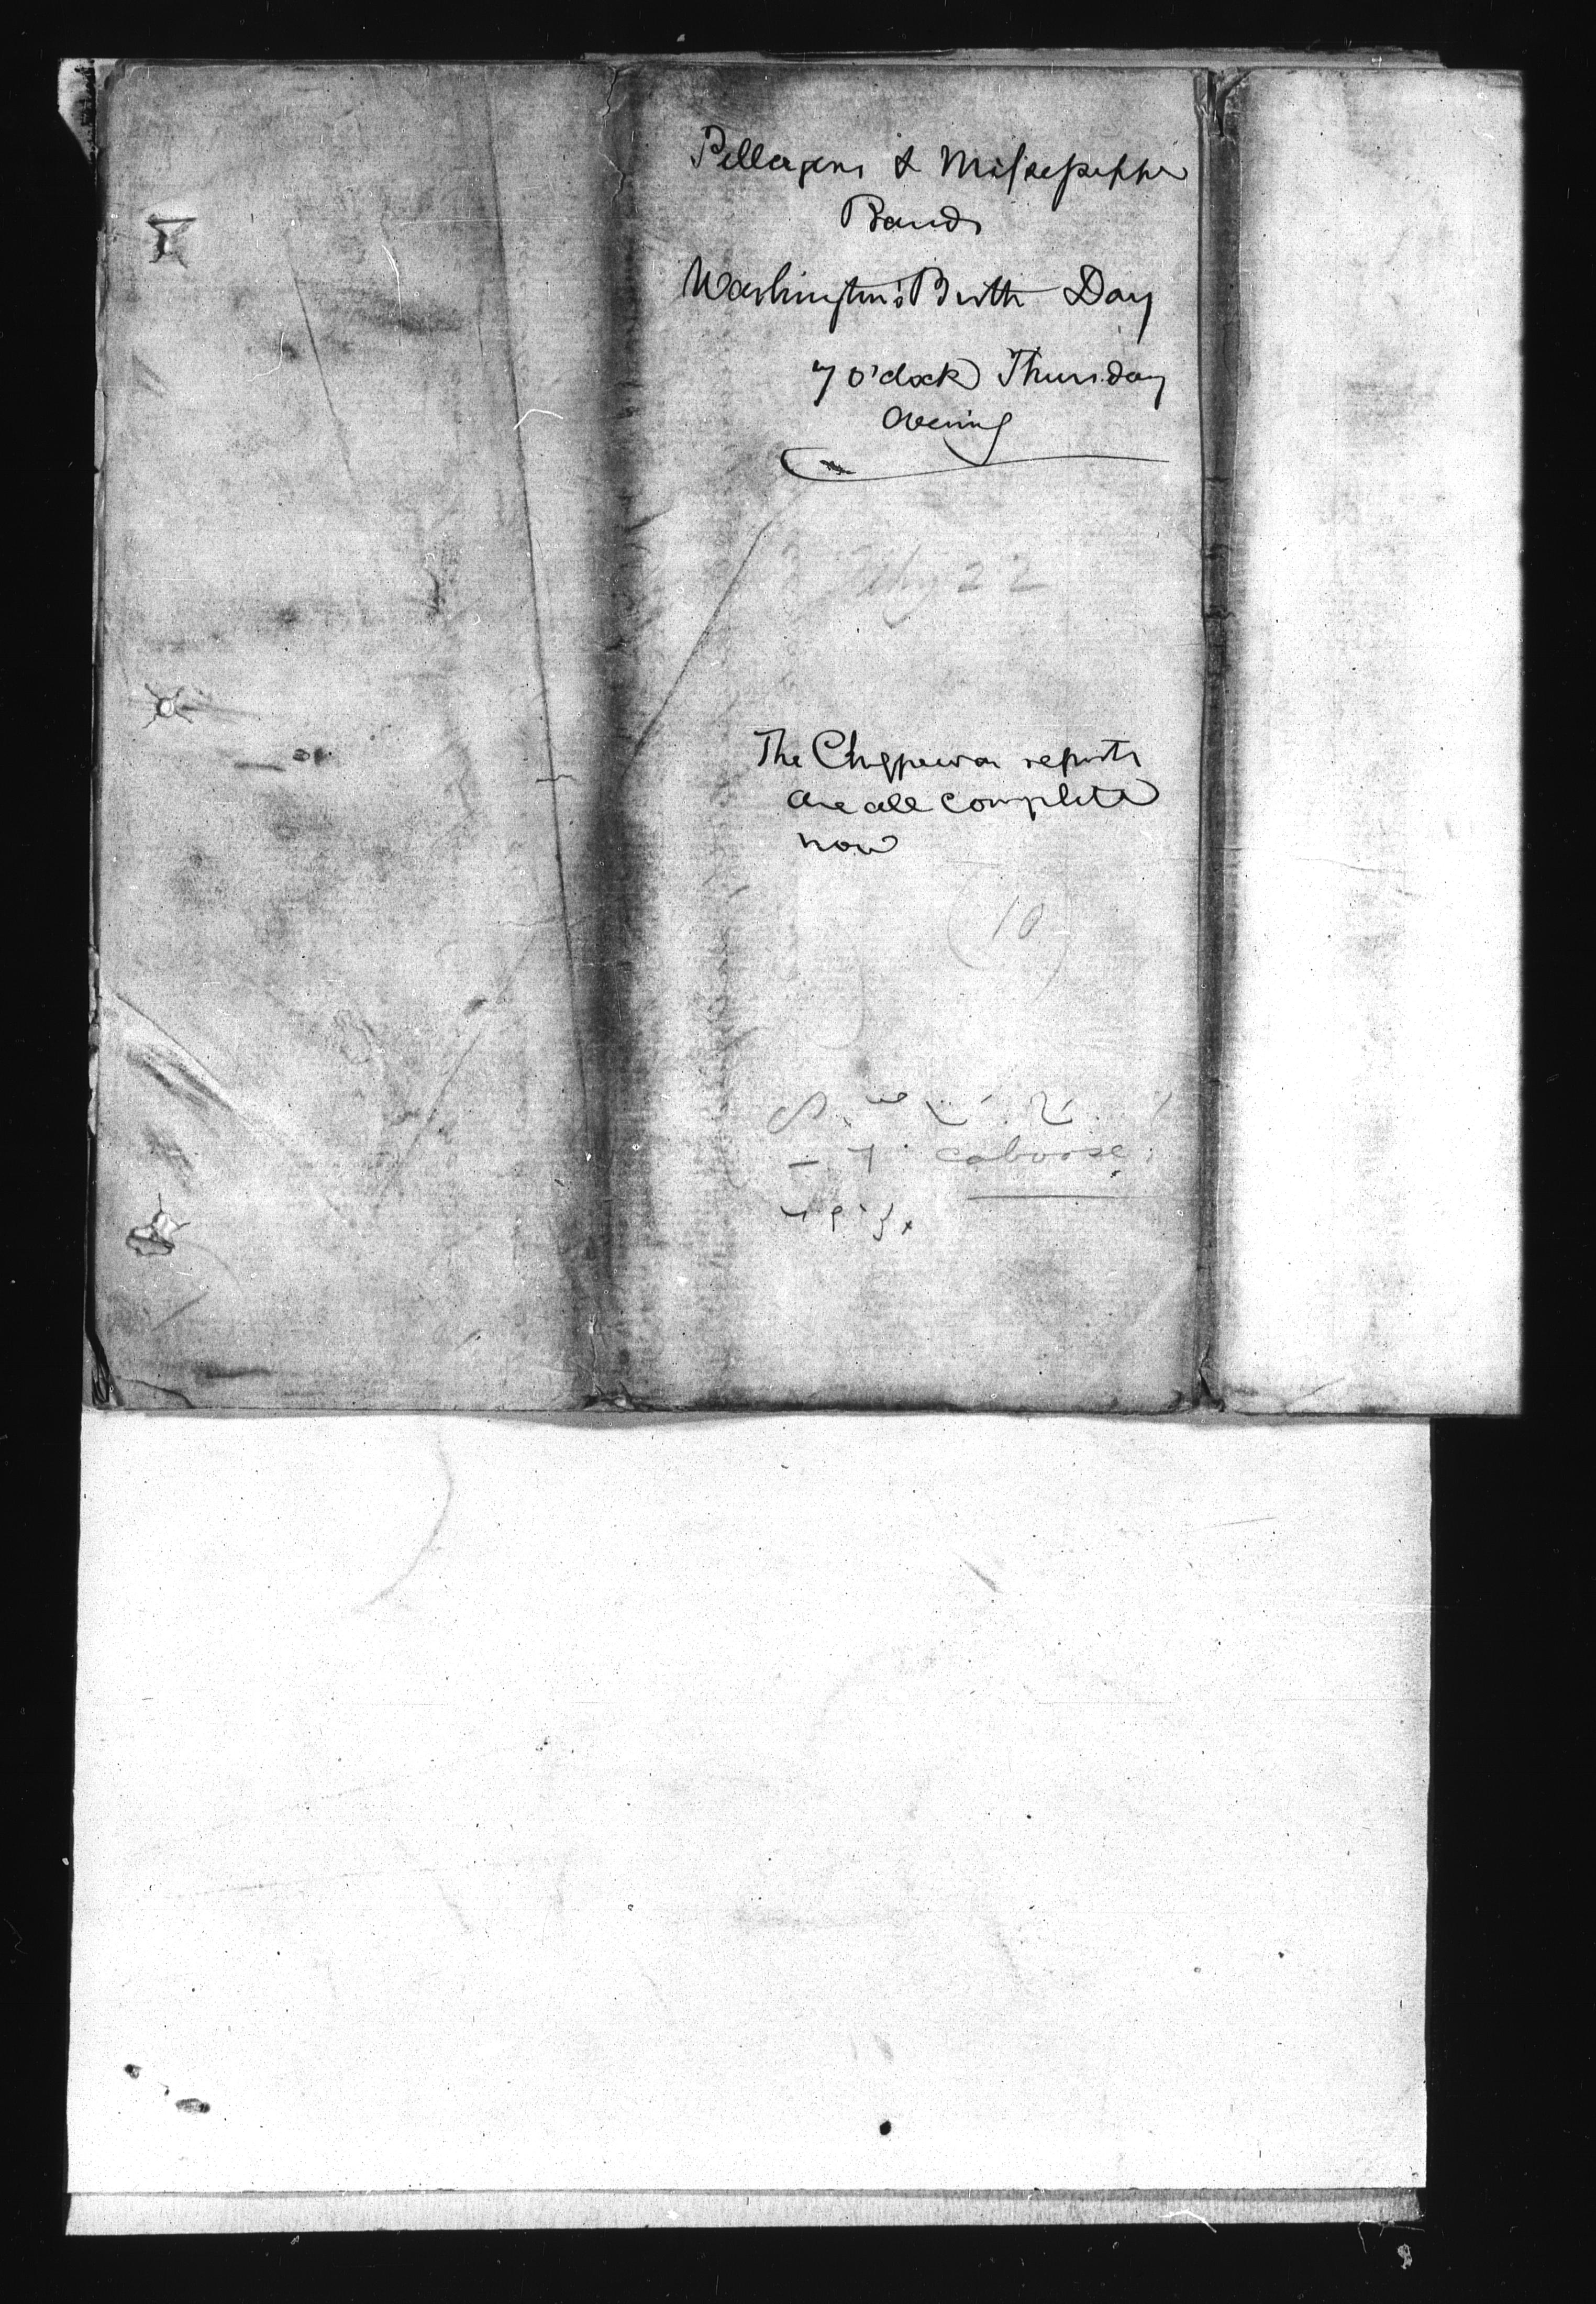 Pillagers & Missisippi
Bands
Washington's Birth Day
7 o'clock Thursday
evening
22
The Chippewa reports
are all complete
now
(10)
caboose